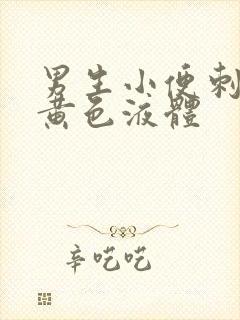 男生小便刺
黄色液體
辛吃吃